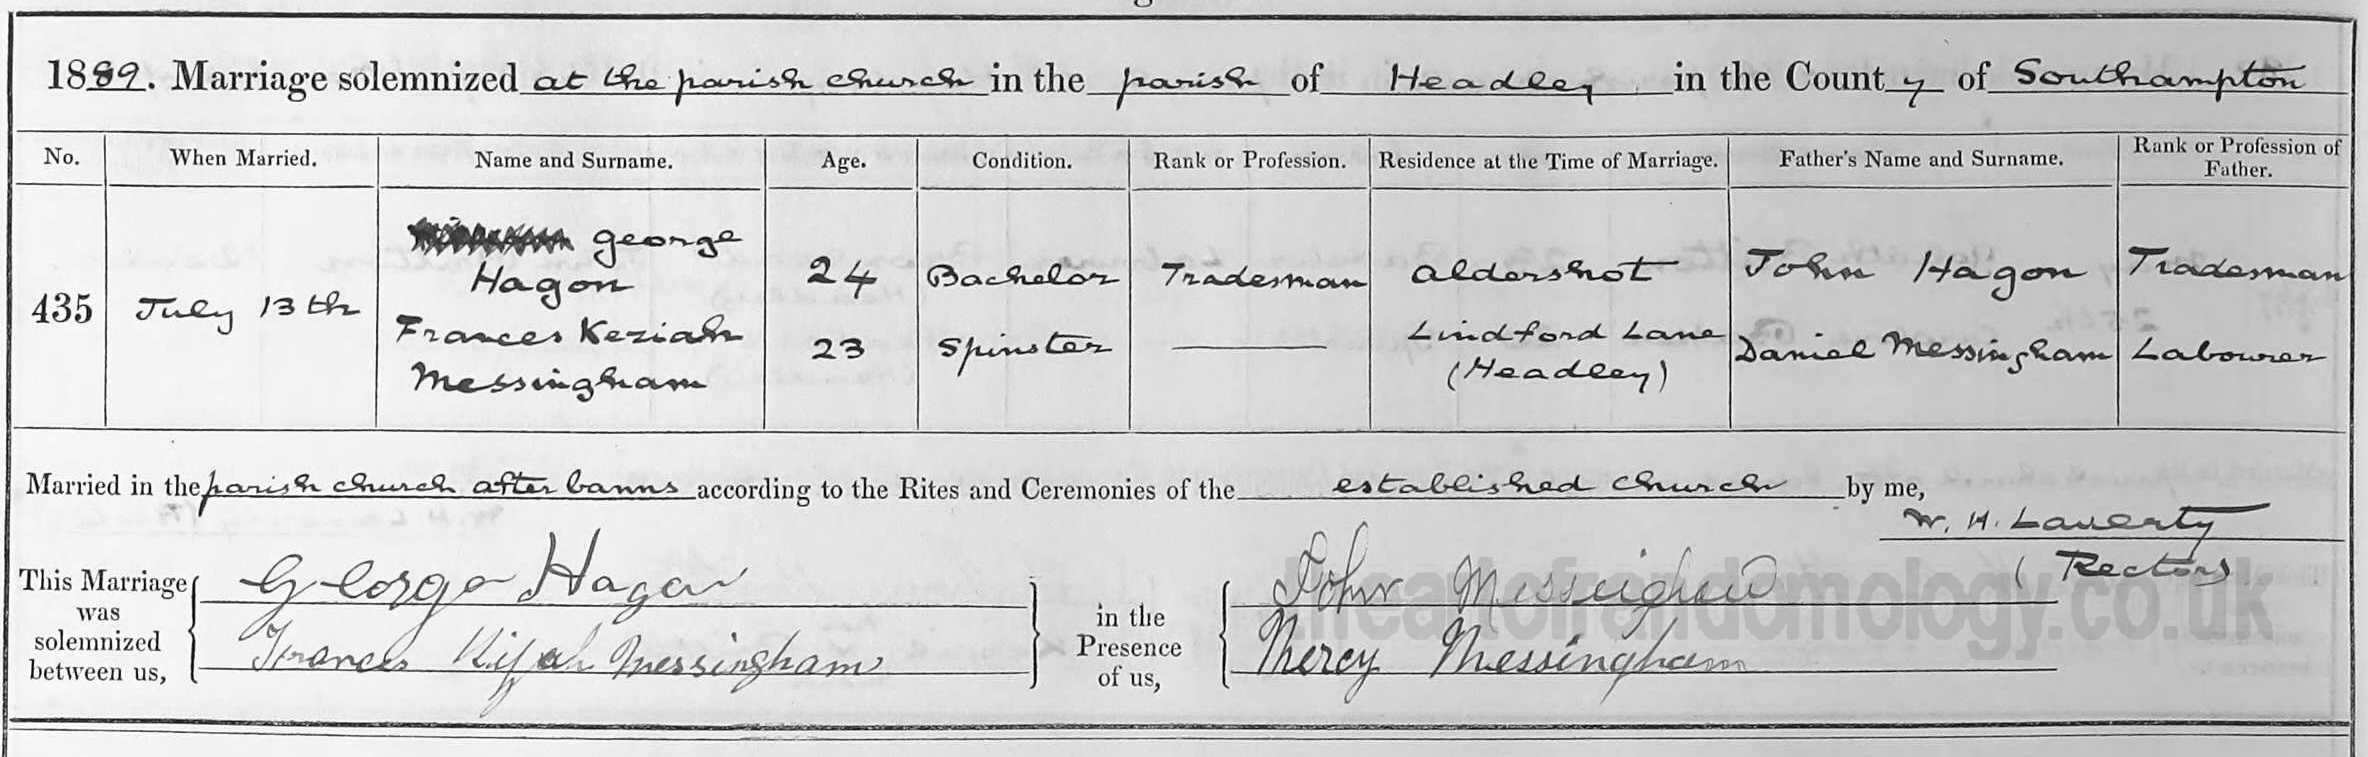 1889. Marriage solemnized at the parish church in the parish of Headley in the County of Southampton
No. When Married. Name and Surname. Age. Condition. Rank or Profession. Residence at the Time of Marriage. Father's Name and Surname. Rank or Profession of Father.
435 July 13th George Hagon 24 Bachelor Tradesman Aldershot John Hagon Tradesman
Frances Keziah Messingham 23 Spinster Lindford Lane (Headley) Daniel Messingham Labourer
Married in the parish church after banns according to the Rites and Ceremonies of the established church by me,
W. H. Laverty
(Rector)
This Marriage was solemnized between us,
George Hagon
Frances Kizah Messingham
in the Presence of us,
John Messingham
Mercy Messingham
theartofrandomology.co.uk